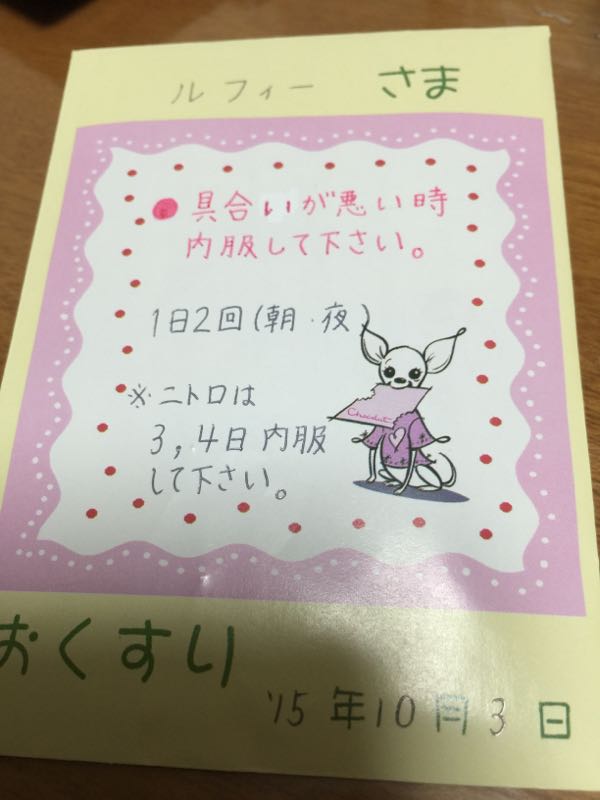 ルフィー さま
具合いが悪い時
内服して下さい。
1日2回(朝・夜)
※ニトロは
3,4日内服
して下さい。
Chocolat
おくすり
'15年10月3日